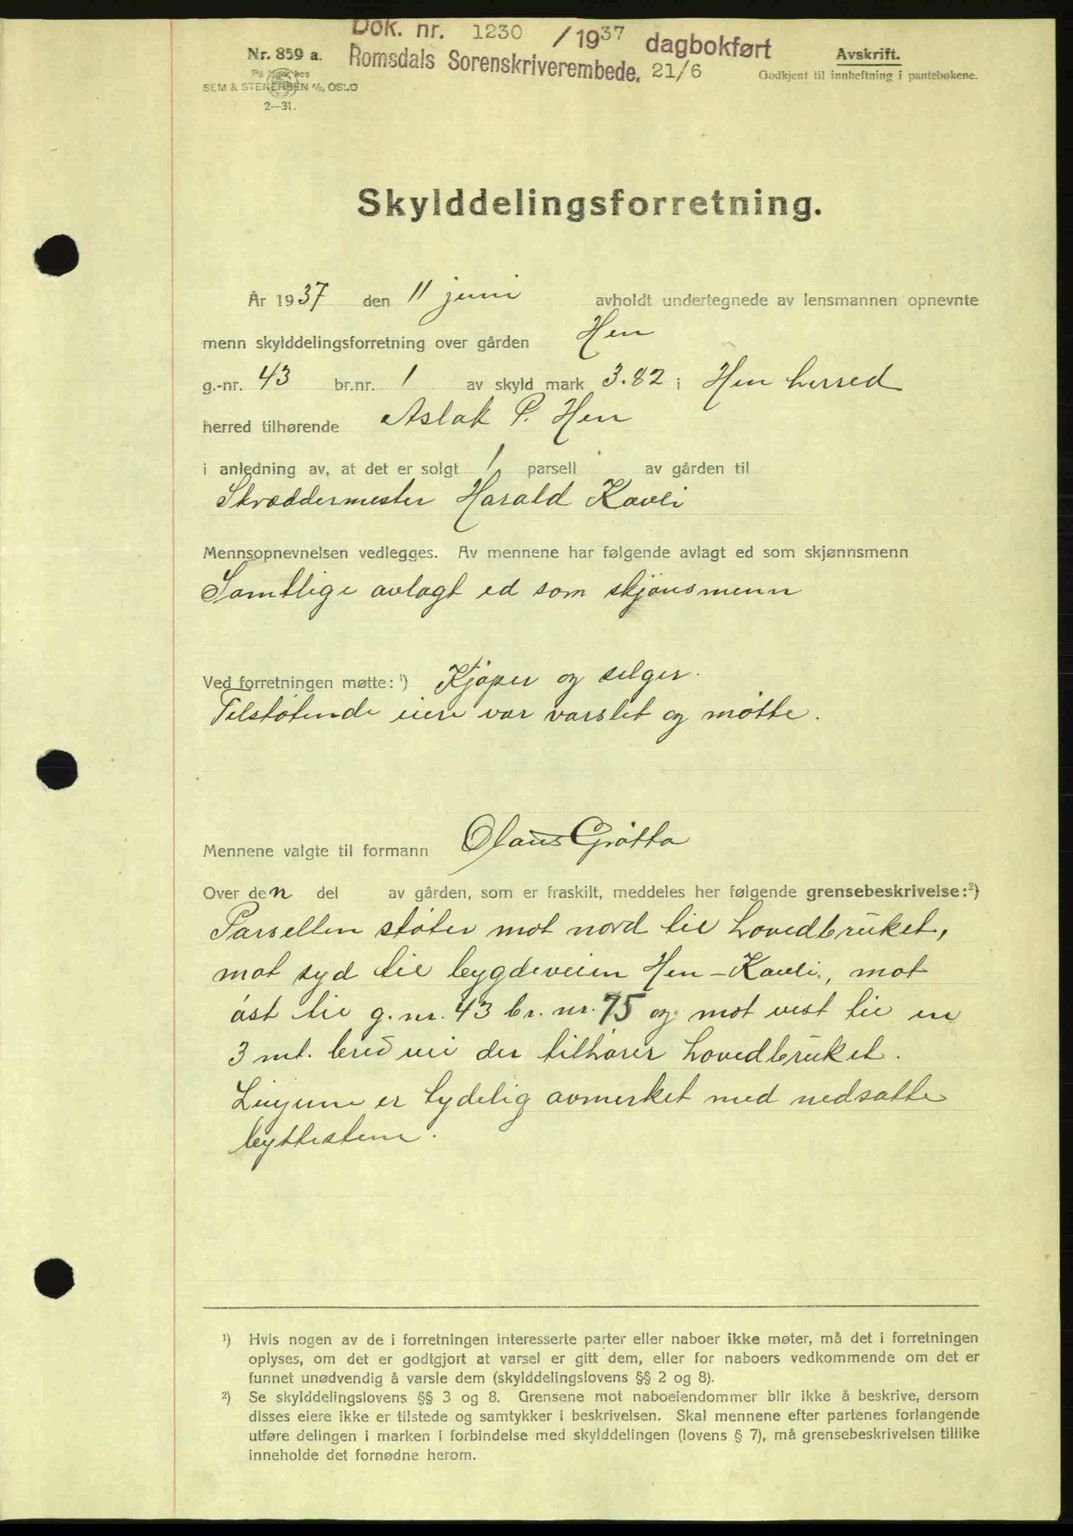 Dok. nr. 1230 / 1937 dagbokført
Romsdals Sorenskriverembede. 21/6
Nr. 859 a.
SEM & STENERSEN A/S, OSLO
2—31.
Avskrift.
Godkjent til innheftning i pantebøkene.
Skylddelingsforretning.
År 1937 den 11 juni avholdt undertegnede av lensmannen opnevnte
menn skylddelingsforretning over gården Hen
g.-nr. 43 br.nr. 1 av skyld mark 3.82 i Hen herred
herred tilhørende Aslak P. Hen
i anledning av, at det er solgt 1 parsell av gården til
Skræddermester Harald Kavli
Mennsopnevnelsen vedlegges. Av mennene har følgende avlagt ed som skjønnsmenn
Samtlige avlagt ed som skjønsmenn
Ved forretningen møtte: ¹) Kjøper og selger.
Tilstøtende eiere var varslet og møtte.
Mennene valgte til formann Olaus Grøtta
Over den del av gården, som er fraskilt, meddeles her følgende grensebeskrivelse: ²)
Parsellen støter mot nord til hovedbruket,
mot syd til bygdeveien Hen - Kavli, mot
øst til g. nr. 43 br. nr. 75 og mot vest til en
3 mt. bred vei der tilhører hovedbruket.
Linjene er tydelig avmerket med nedsatte
byttestene.
¹) Hvis nogen av de i forretningen interesserte parter eller naboer ikke møter, må det i forretningen
oplyses, om det er godtgjort at varsel er gitt dem, eller for naboers vedkommende om det er
funnet unødvendig å varsle dem (skylddelingslovens §§ 2 og 8).
²) Se skylddelingslovens §§ 3 og 8. Grensene mot naboeiendommer blir ikke å beskrive, dersom
disses eiere ikke er tilstede og samtykker i beskrivelsen. Skal mennene efter partenes forlangende
utføre delingen i marken i forbindelse med skylddelingen (lovens § 7), må grensebeskrivelsen tillike
inneholde det fornødne herom.